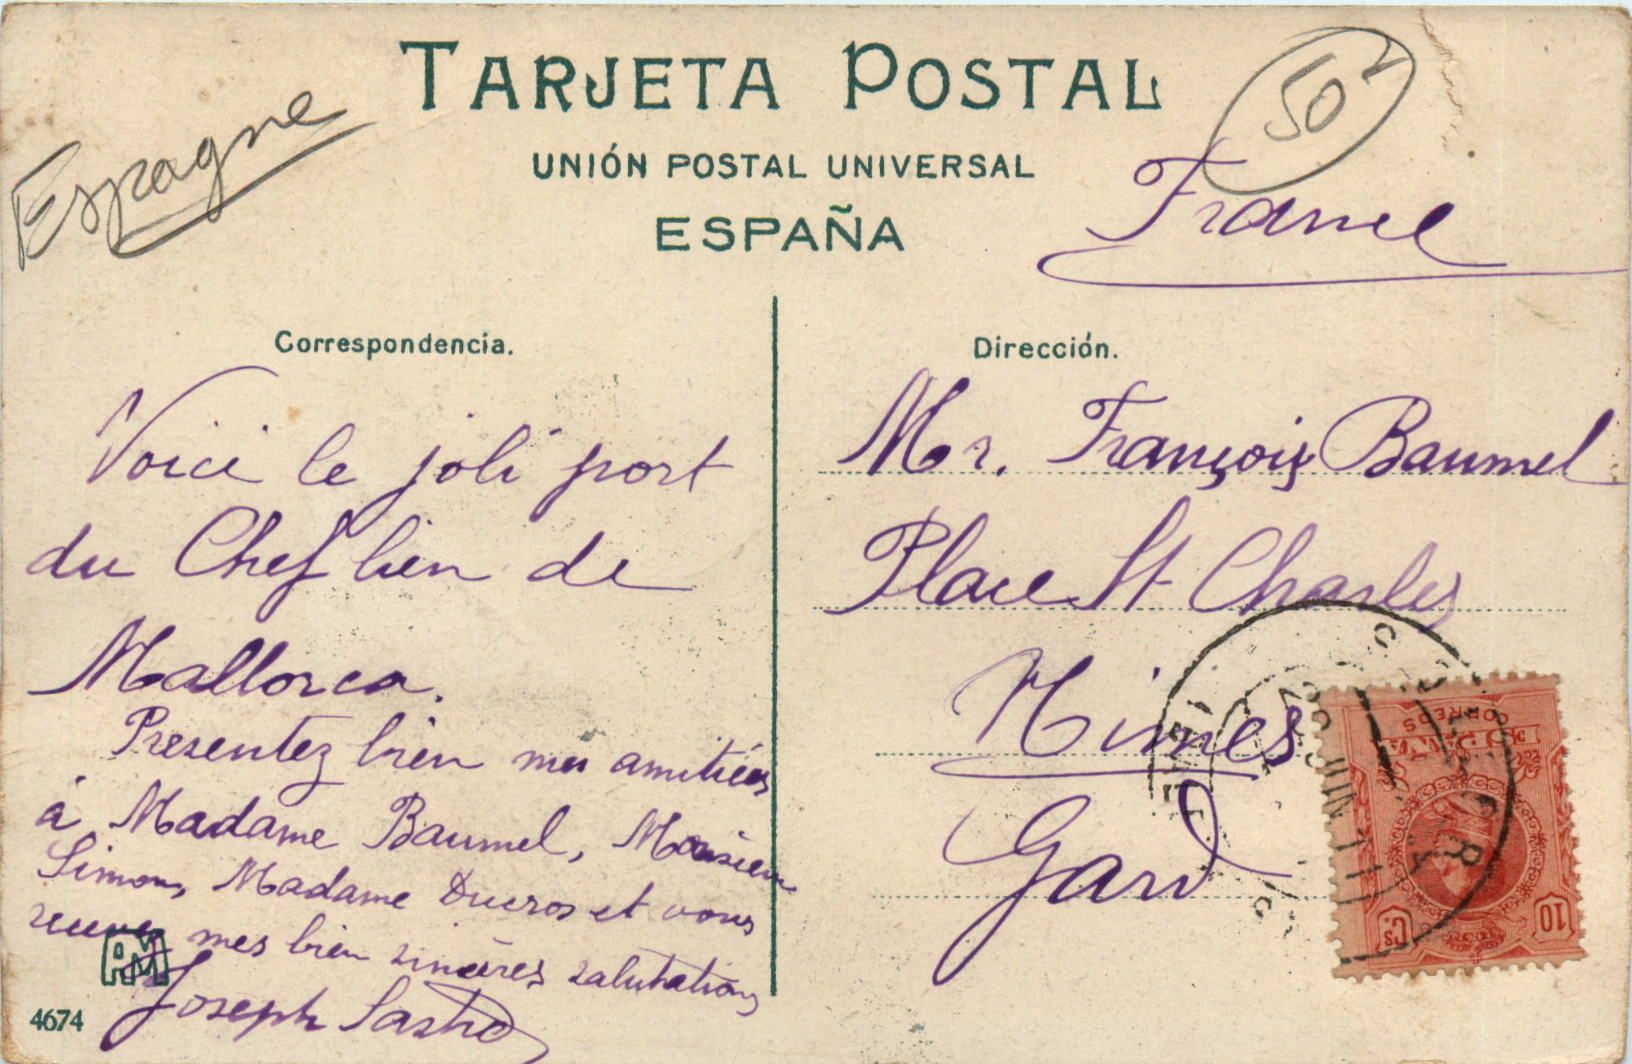 TARJETA POSTAL
UNIÓN POSTAL UNIVERSAL
ESPAÑA
Espagne
50
France
Correspondencia.
Voici le joli port
du Chef lieu de
Mallorca.
Presentez bien mes amitiées
à Madame Baumel, Monsieur
Simon, Madame Ducros et vous
recevez mes bien sincères salutations
Joseph Sastre
AM
4674
Dirección.
Mr. François Baumel
Place St Charles
Nimes
Gard
CORREOS
ESPAÑA
10 Cs